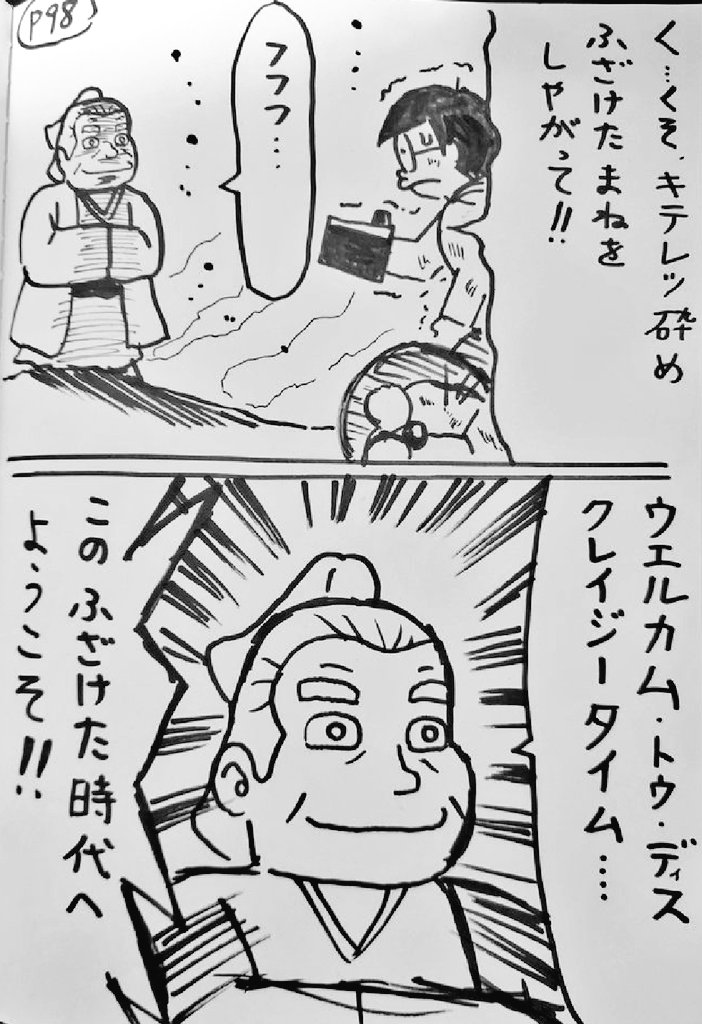 P98
く…くそ、キテレツ砕め
ふざけたまねを
しやがって!!
フフフ…
ウエルカム・トゥ・ディス
クレイジータイム…
このふざけた時代へ
ようこそ!!